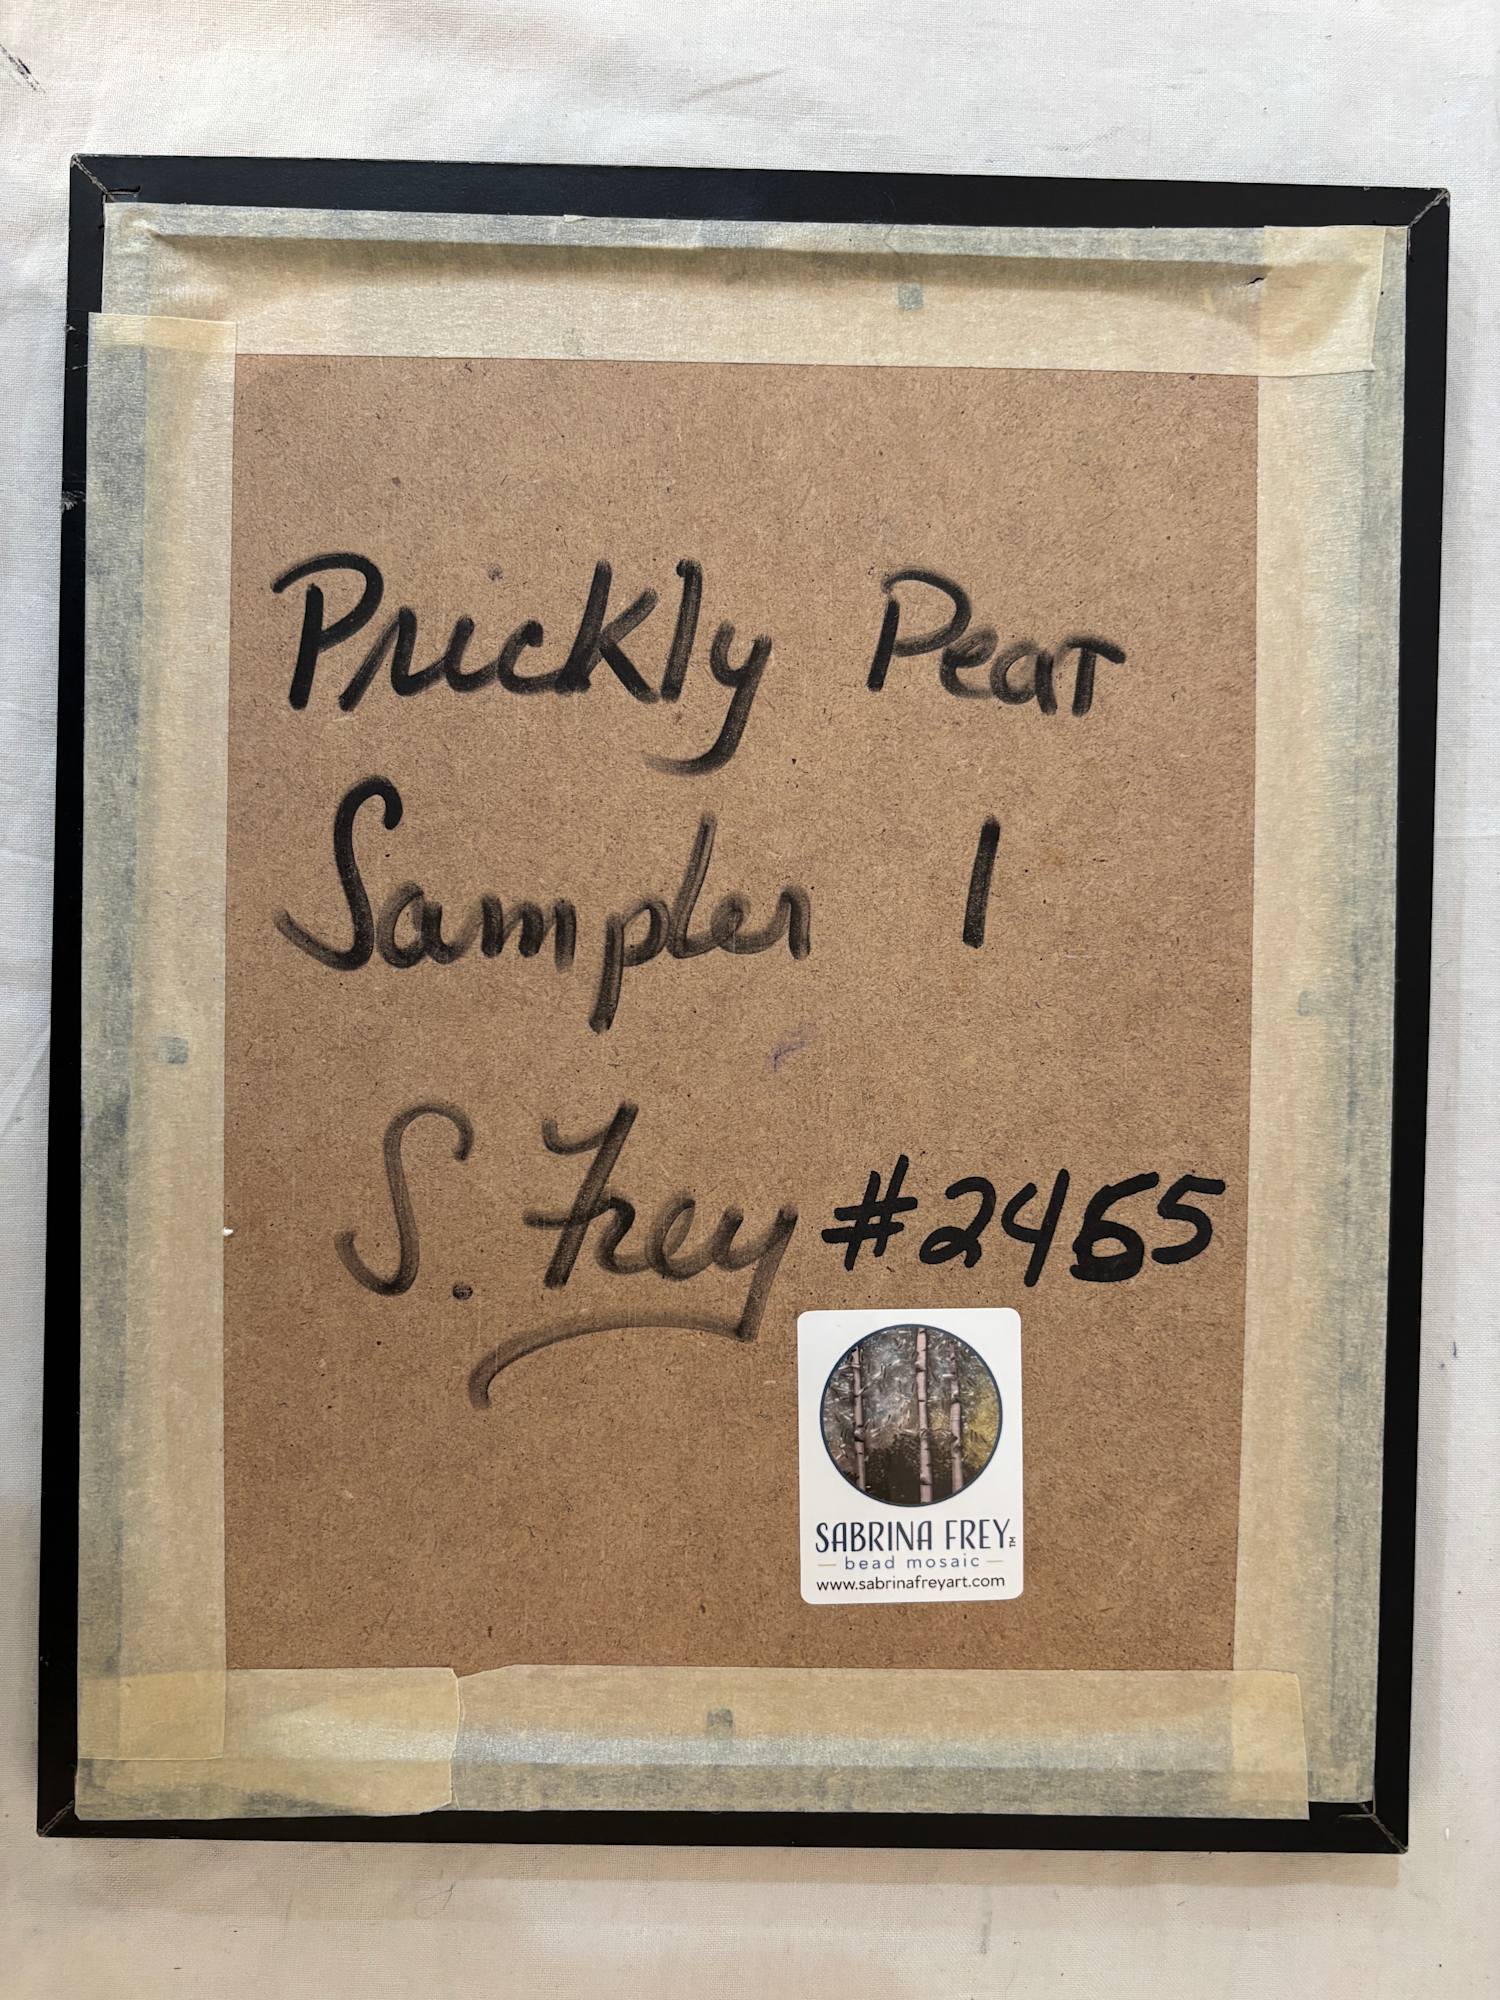 Prickly Pear
Sampler 1
S. Frey #2465
SABRINA FREY™
bead mosaic
www.sabrinafreyart.com